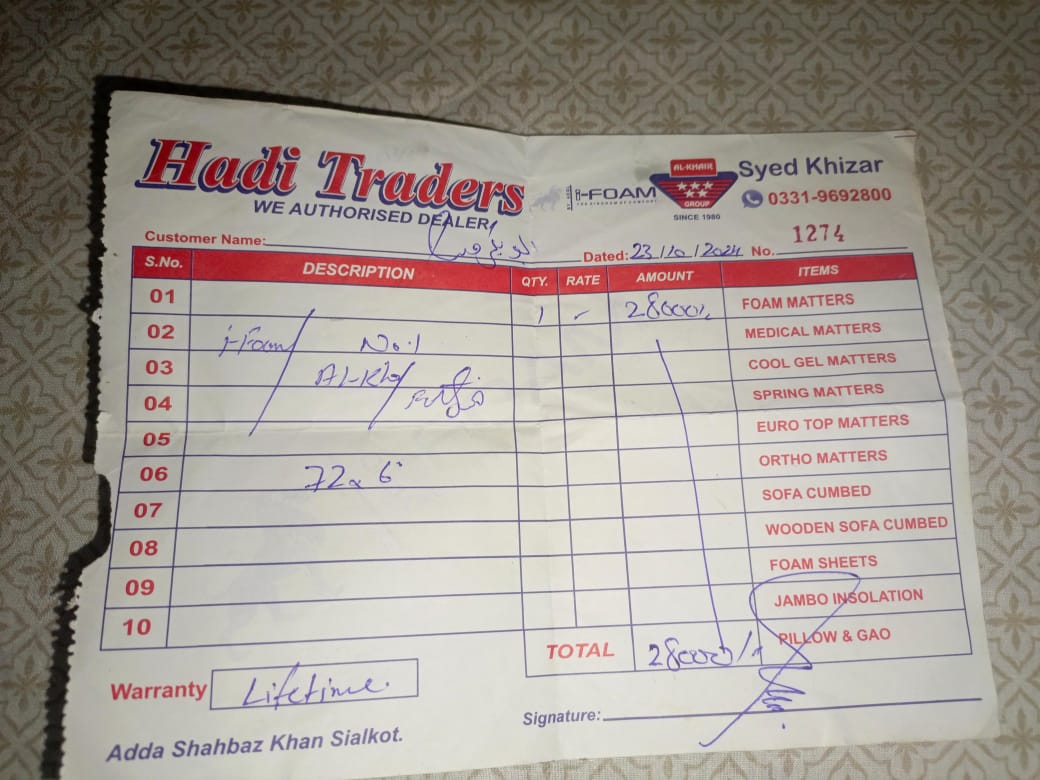 Hadi Traders
WE AUTHORISED DEALER
i-FOAM
AL-KHAIR
GROUP
SINCE 1980
Syed Khizar
0331-9692800
Customer Name:
Dated: 23/10/2024 No. 1274
S.No. DESCRIPTION QTY. RATE AMOUNT ITEMS
01 1 - 28000/- FOAM MATTERS
02 i-Foam No.1 MEDICAL MATTERS
03 COOL GEL MATTERS
04 SPRING MATTERS
05 EURO TOP MATTERS
06 72x 6" ORTHO MATTERS
07 SOFA CUMBED
08 WOODEN SOFA CUMBED
09 FOAM SHEETS
10 JAMBO INSOLATION
TOTAL 28000/- PILLOW & GAO
Warranty Lifetime.
Signature:
Adda Shahbaz Khan Sialkot.